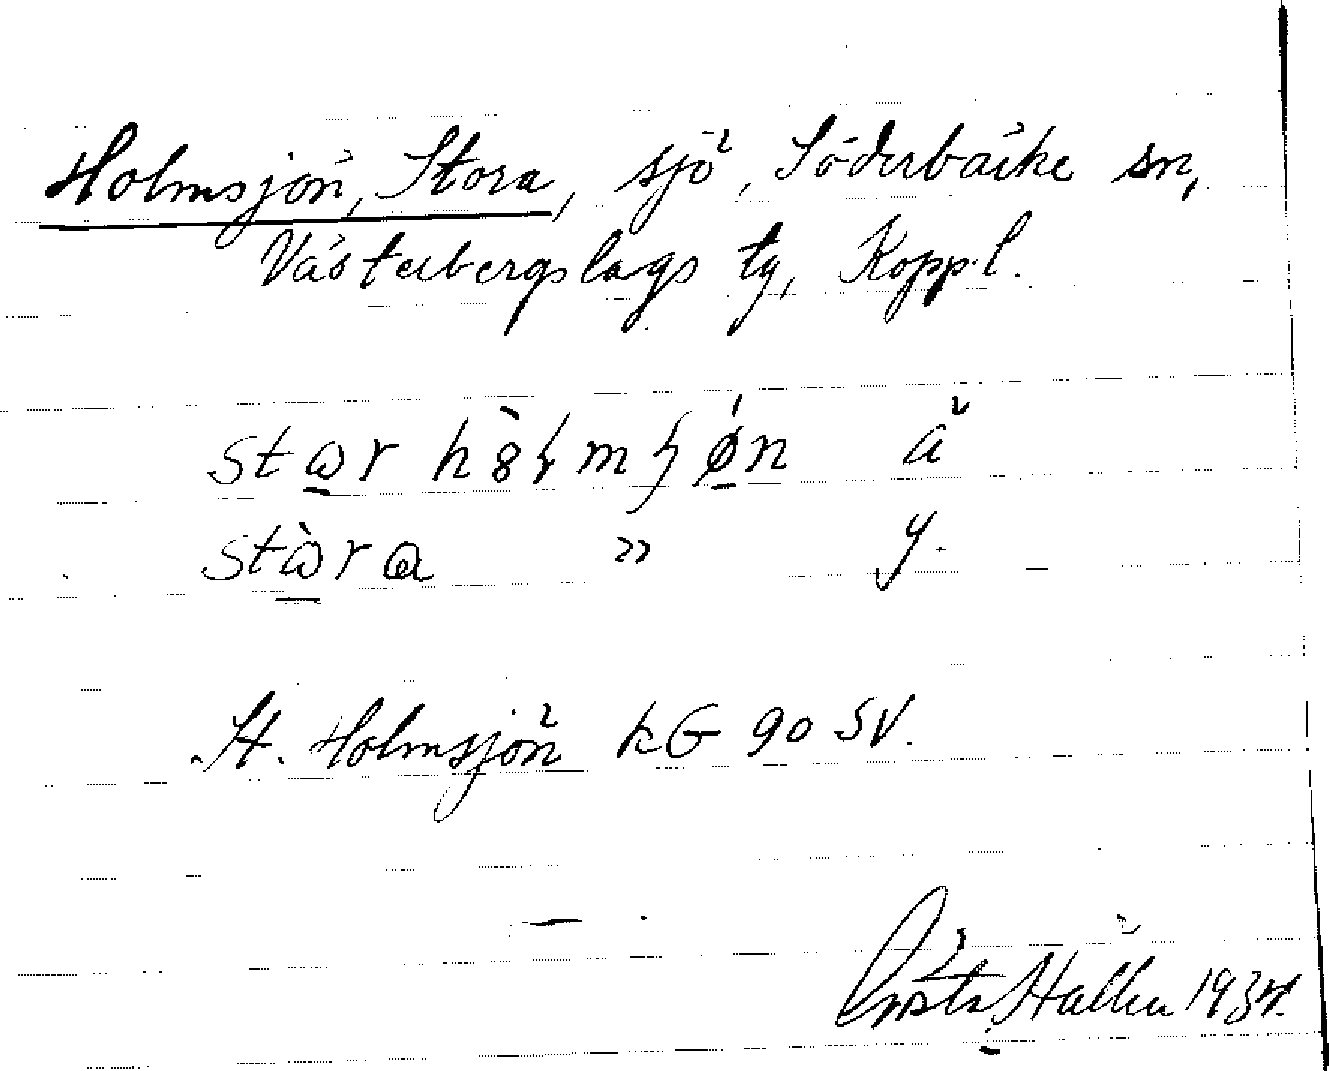 Holmsjön, Stora, sjö, Söderbärke sn,
Västerbergslags tg, Kopp. l.
ä
y.
St. Holmsjön kG 90 SV.
Gösta Hallén 1934.